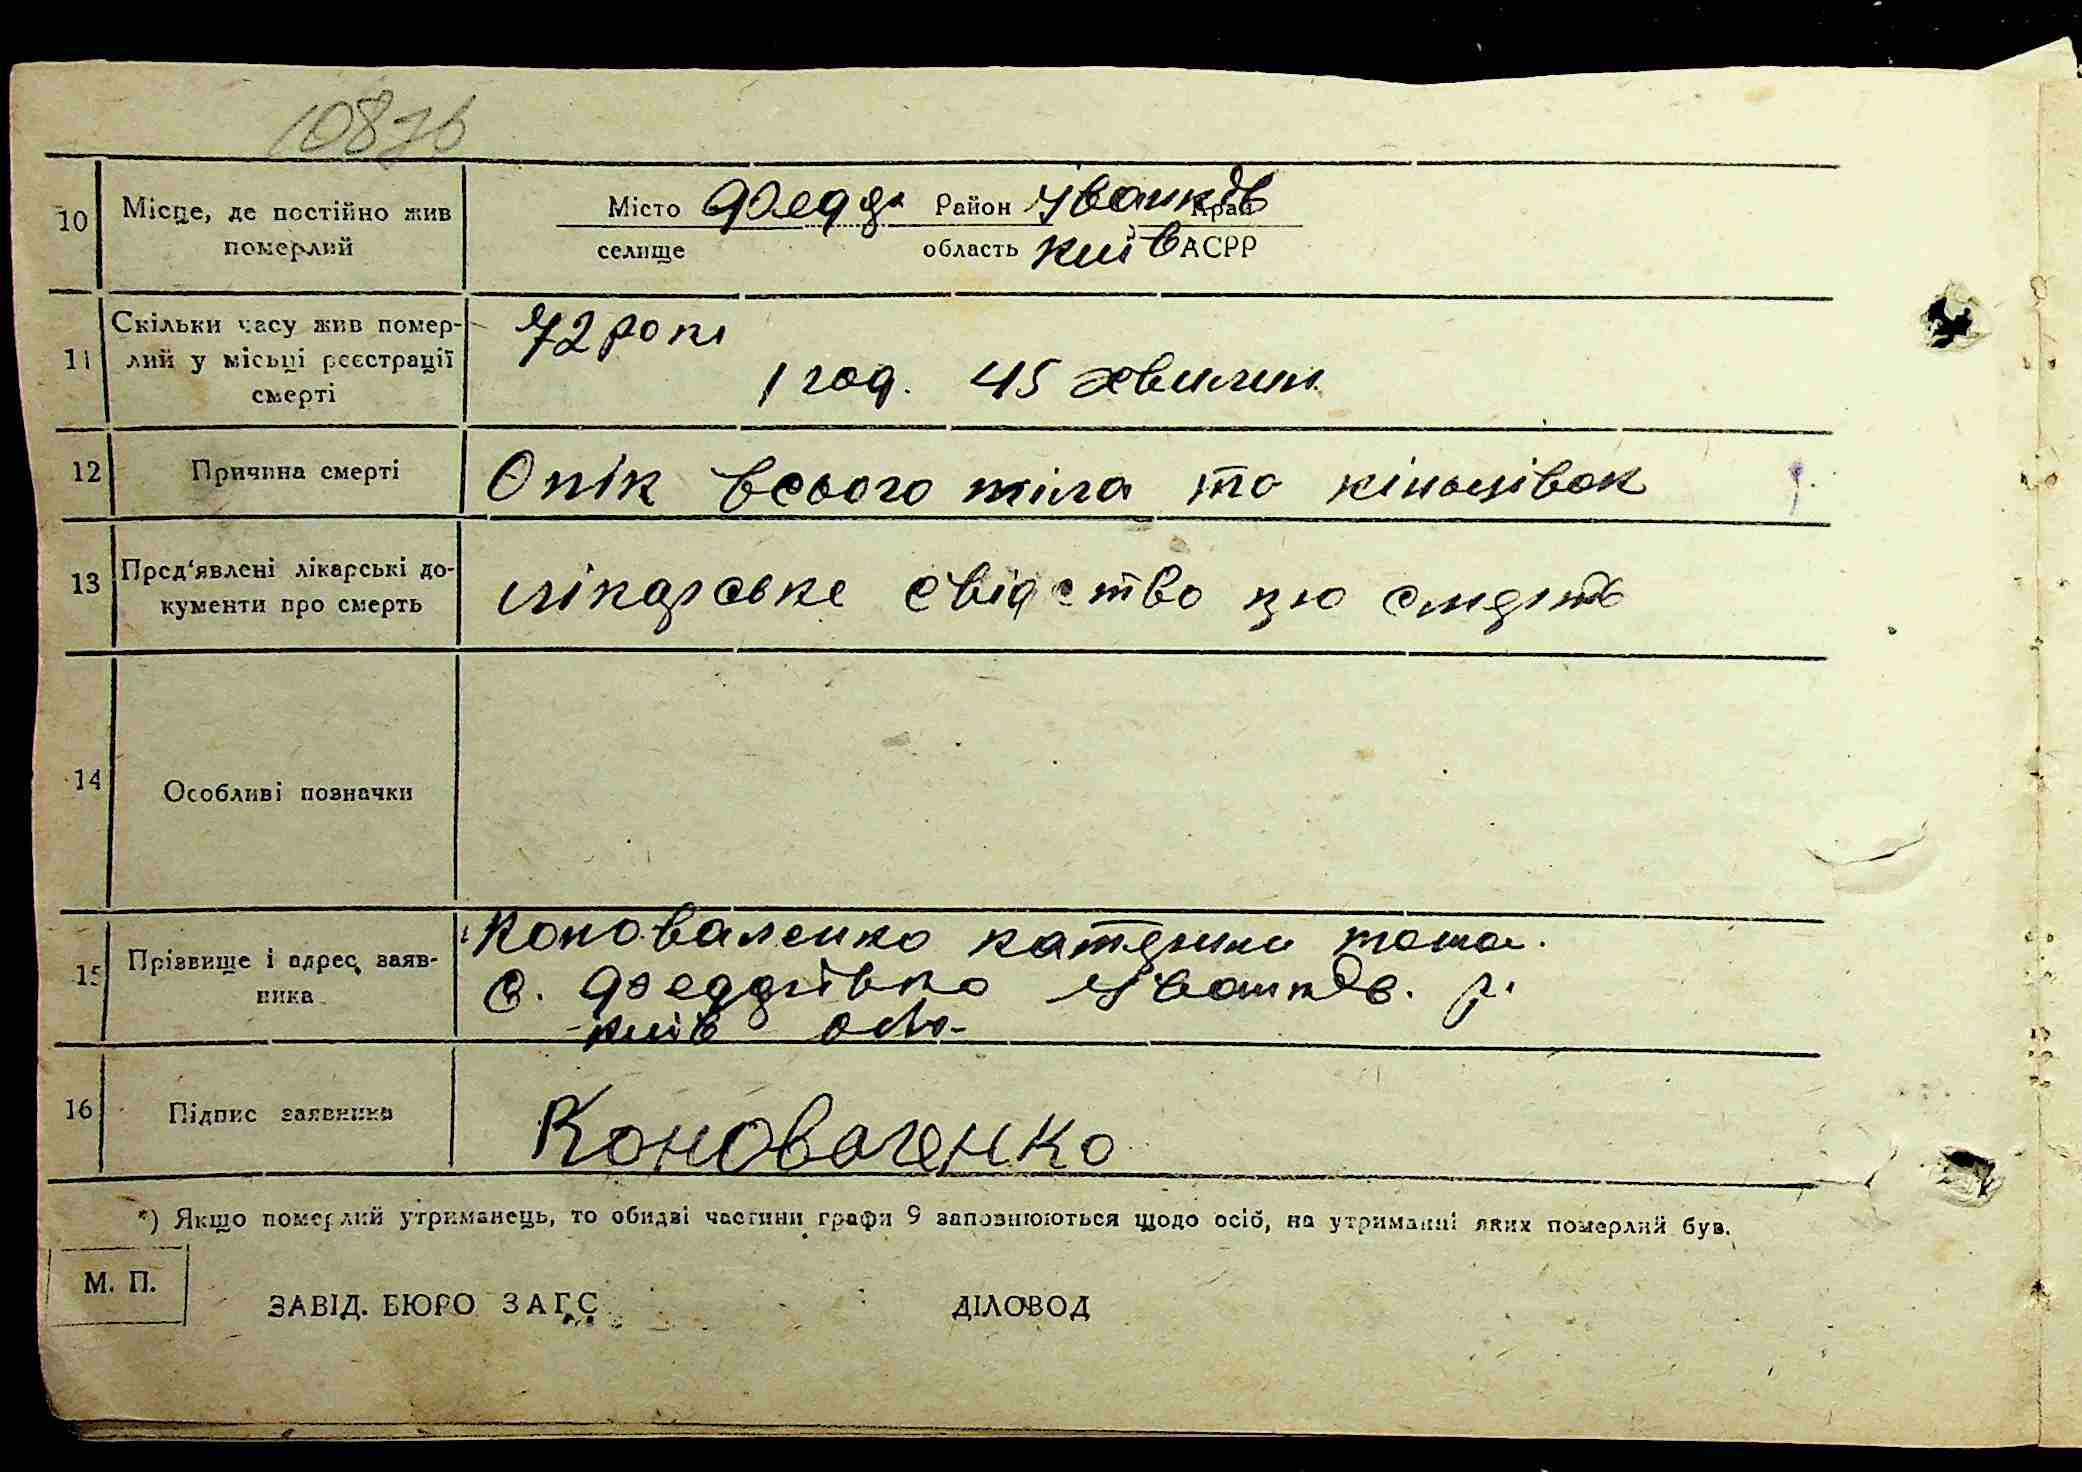 10
Місце, де постійно жив
померлий
Місто Федор Район Іванків Край
селище область Київ АСРР
11
Скільки часу жив помер-
лий у місьці реєстрації
смерті
72 роки
1 год. 45 хвилин
12
Причина смерті
Опік всього тіла та кінцівок
13
Пред'явлені лікарські до-
кументи про смерть
лікарське свідство про смерть
14
Особливі позначки
15
Прізвище і адрес заяв-
ника
Коноваленко Катерина
с. Федорівка Іванків. р.
Київ обл.
16
Підпис заявника
Коноваленко
*) Якщо померлий утриманець, то обидві частини графи 9 заповнюються щодо осіб, на утриманні яких померлий був.
М. П.
ЗАВІД. БЮРО ЗАГС ДІЛОВОД